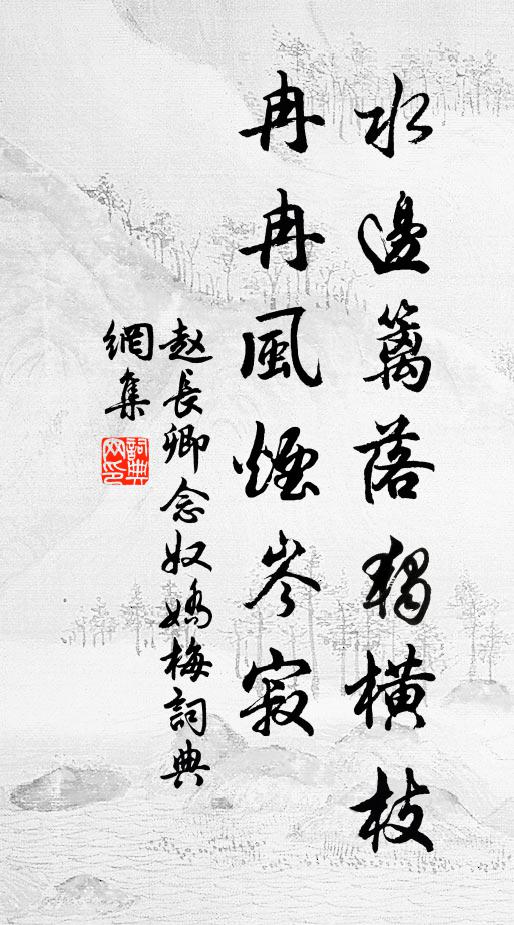 水邊篱落獨橫枝
冉冉風煙岑寂
赵長卿念奴嬌梅詞典
網集
詞典
网印